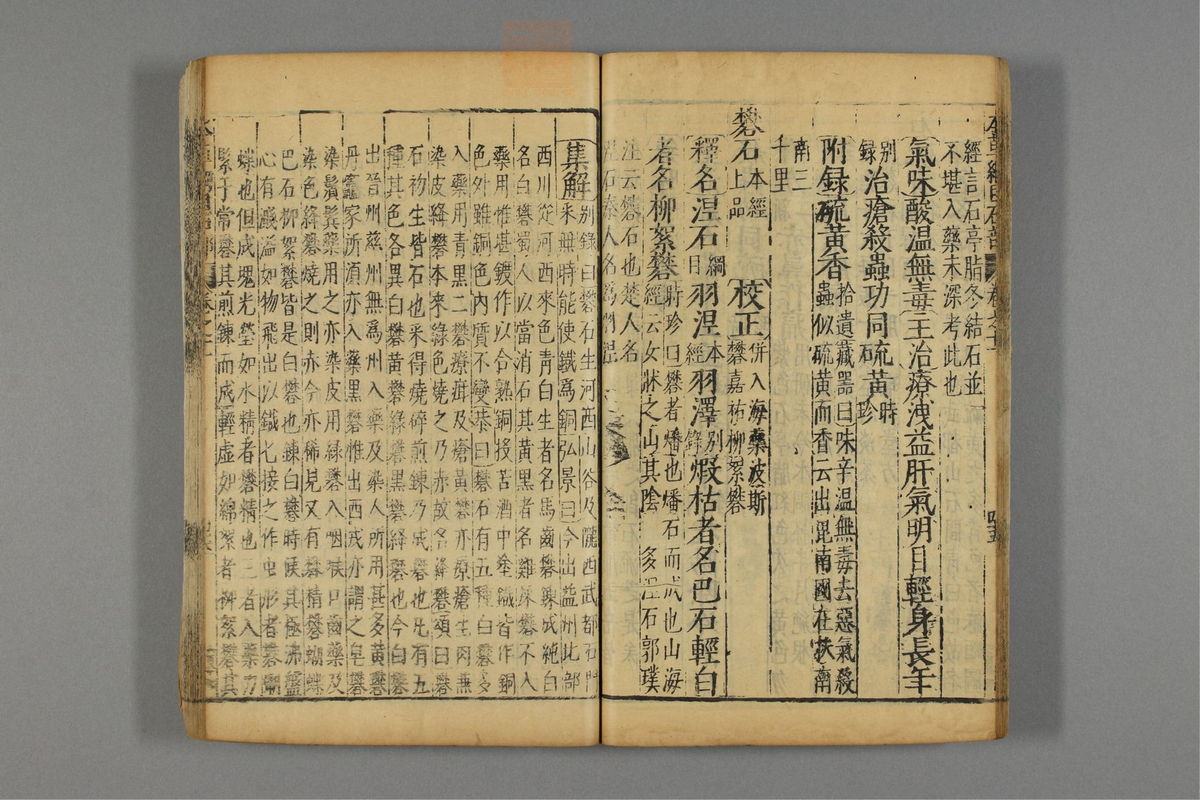 經言石亭脂冬結石並
不堪入藥未深考此也
氣味酸温無毒主治療洩益肝氣明目輕身長年
别録治瘡殺蟲功同硫黄時珍
附録硫黄香拾遺藏器曰味辛温無毒去惡氣殺
蟲似硫黄而香云出毘南國在扶南
南三千里
礬石本經上品校正併入海藥波斯
礬嘉祐柳絮礬
釋名涅石綱目羽涅本經羽澤别錄煆枯者名巴石輕白
者名柳絮礬時珍曰礬者燔也燔石而成也山海
經云女牀之山其陰多涅石郭璞
注云礬石也楚人名
涅石秦人名爲羽涅
集解别録曰礬石生河西山谷及隴西武都石門
采無時能使鐵爲銅弘景曰今出益州北部
西川從河西來色青白生者名馬齒礬鍊成純白
名白礬蜀人以當消石其黄黑者名雞屎礬不入
藥用惟堪鍍作以合熟銅投苦酒中塗鐵皆作銅
色外雖銅色内質不變恭曰礬石有五種白礬多
入藥用青黑二礬療疳及瘡黄礬亦療瘡生肉兼
染皮絳礬本來綠色燒之乃赤故名絳礬頌曰礬
石初生皆石也采得燒碎煎鍊乃成礬也凡有五
種其色各異白礬黄礬綠礬黑礬絳礬也今白礬
出晉州慈州無爲州入藥及染人所用甚多黄礬
丹竈家所須亦入藥黑礬惟出西戎亦謂之皂礬
染鬚鬢藥用之亦染皮用綠礬入咽喉口齒藥及
染色絳礬燒之則赤今亦稀見又有礬精礬蝴蝶
巴石柳絮礬皆是白礬也鍊白礬時候其極沸盤
心有濺溢如物飛出以鐵匕接之作虫形者礬蝴
蝶也但成塊光瑩如水精者礬精也二者入藥力
緊于常礬其煎鍊而成輕虚如綿絮者柳絮礬其